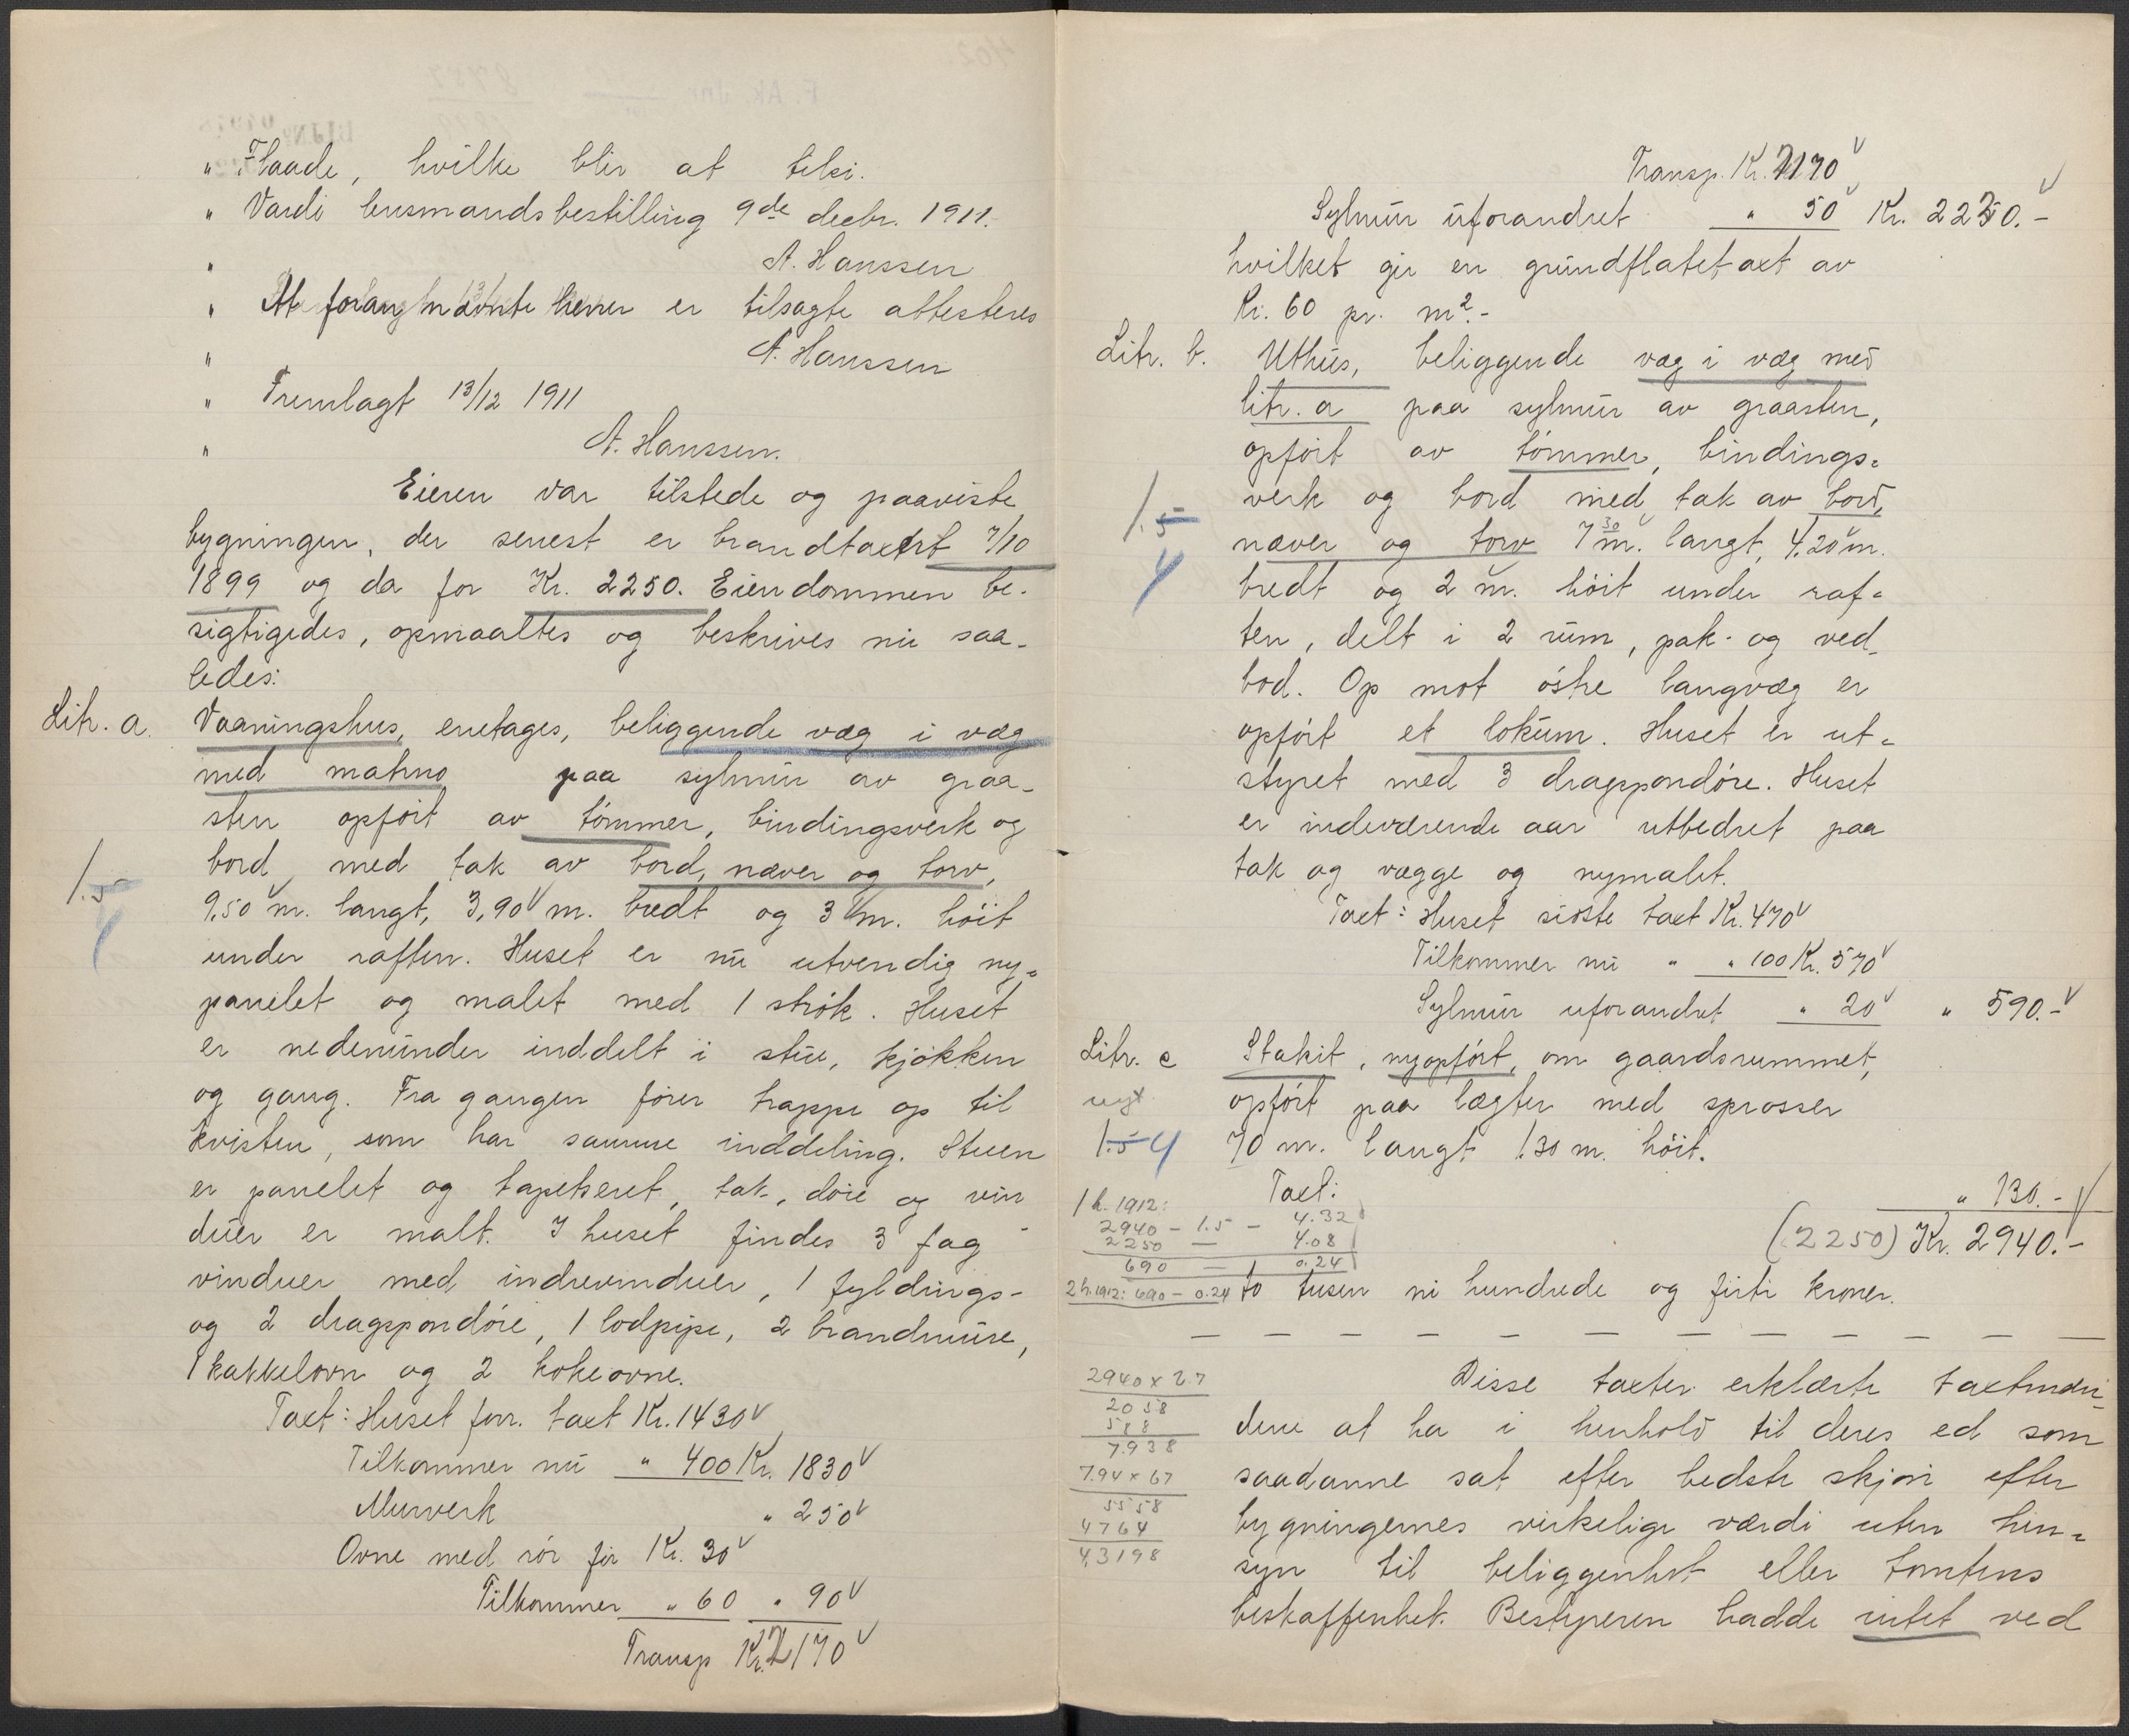 " Flaade, hvilke blir at tilsi.
" Vardø lensmandsbestilling 9de decbr. 1911.
" A. Hanssen
" At foran nævnte herrer er tilsagte attesteres
" A. Hanssen
" Fremlagt 13/12 1911
" A. Hanssen.
Eieren var tilstede og paaviste
bygningen, der senest er brandtaxert 7/10
1899 og da for Kr. 2250. Eiendommen be-
sigtigedes, opmaaltes og beskrives nu saa-
ledes:
Litr. a. Vaaningshus, enetages, beliggende væg i væg
med matrno paa sylmur av graa-
sten opført av tømmer, bindingsverk og
bord med tak av bord, næver og torv,
1.5
4
9.50 m. langt, 3,90 m. bredt og 3 m. høit
under raften. Huset er nu utvendig ny-
panelet og malet med 1 strøk. Huset
er nedenunder inddelt i stue, kjøkken
og gang. Fra gangen fører trappe op til
kvisten, som har samme inddeling. Stuen
er panelet og tapetseret, tak, døre og vin
duer er malt. I huset findes 3 fag
vinduer med indrevinduer, 1 fyldings-
og 2 dragspondøre, 1 lodpipe, 2 brandmure,
1 kakkelovn og 2 kokeovne.
Taxt: Huset forr. taxt Kr. 1430
Tilkommer nu " 400 Kr. 1830
Murverk " 250
Ovne med rør før Kr. 30
Tilkommer " 60 " 90
Transp Kr. 2170
Transp. Kr. 2170
Sylmur uforandret " 50 Kr. 2220.-
hvilket gir en grundflatetaxt av
Kr. 60 pr. m2.-
Litr. b. Uthus, beliggende væg i væg med
litr. a paa sylmur av graasten,
opført av tømmer, bindings-
verk og bord med tak av bord,
1.5
4
næver og torv 7.30 m. langt, 4.20 m.
bredt og 2 m. høit under raf-
ten, delt i 2 rum, pak- og ved-
bod. Op mot østre langvæg er
opført et lokum. Huset er ut-
styret med 3 dragspondøre. Huset
er indeværende aar utbedret paa
tak og vægge og nymalet.
Taxt: Huset sidste taxt Kr. 470
Tilkommer nu " " 100 Kr. 570
Sylmur uforandret " 20 " 590.-
Litr. c Stakit, nyopført, om gaardsrummet,
nyt opført paa lægter med sprosser
1.5 4 70 m. langt 1.30 m. høit.
Taxt: " 130.-
1 h. 1912:
2940 - 1.5 - 4.32
2250 — 4.08
690 — 0.24
2 h. 1912: 690 - 0.24
(2250) Kr. 2940.-
to tusen ni hundrede og firti kroner.
Disse taxter erklærte taxtmæn-
dene at ha i henhold til deres ed som
saadanne sat efter bedste skjøn efter
bygningernes virkelige værdi uten hen-
syn til beliggenhet eller tomtens
beskaffenhet. Bestyreren hadde intet ved
2940 x 27
2058
588
7.938
7.94 x 67
5558
4764
43198